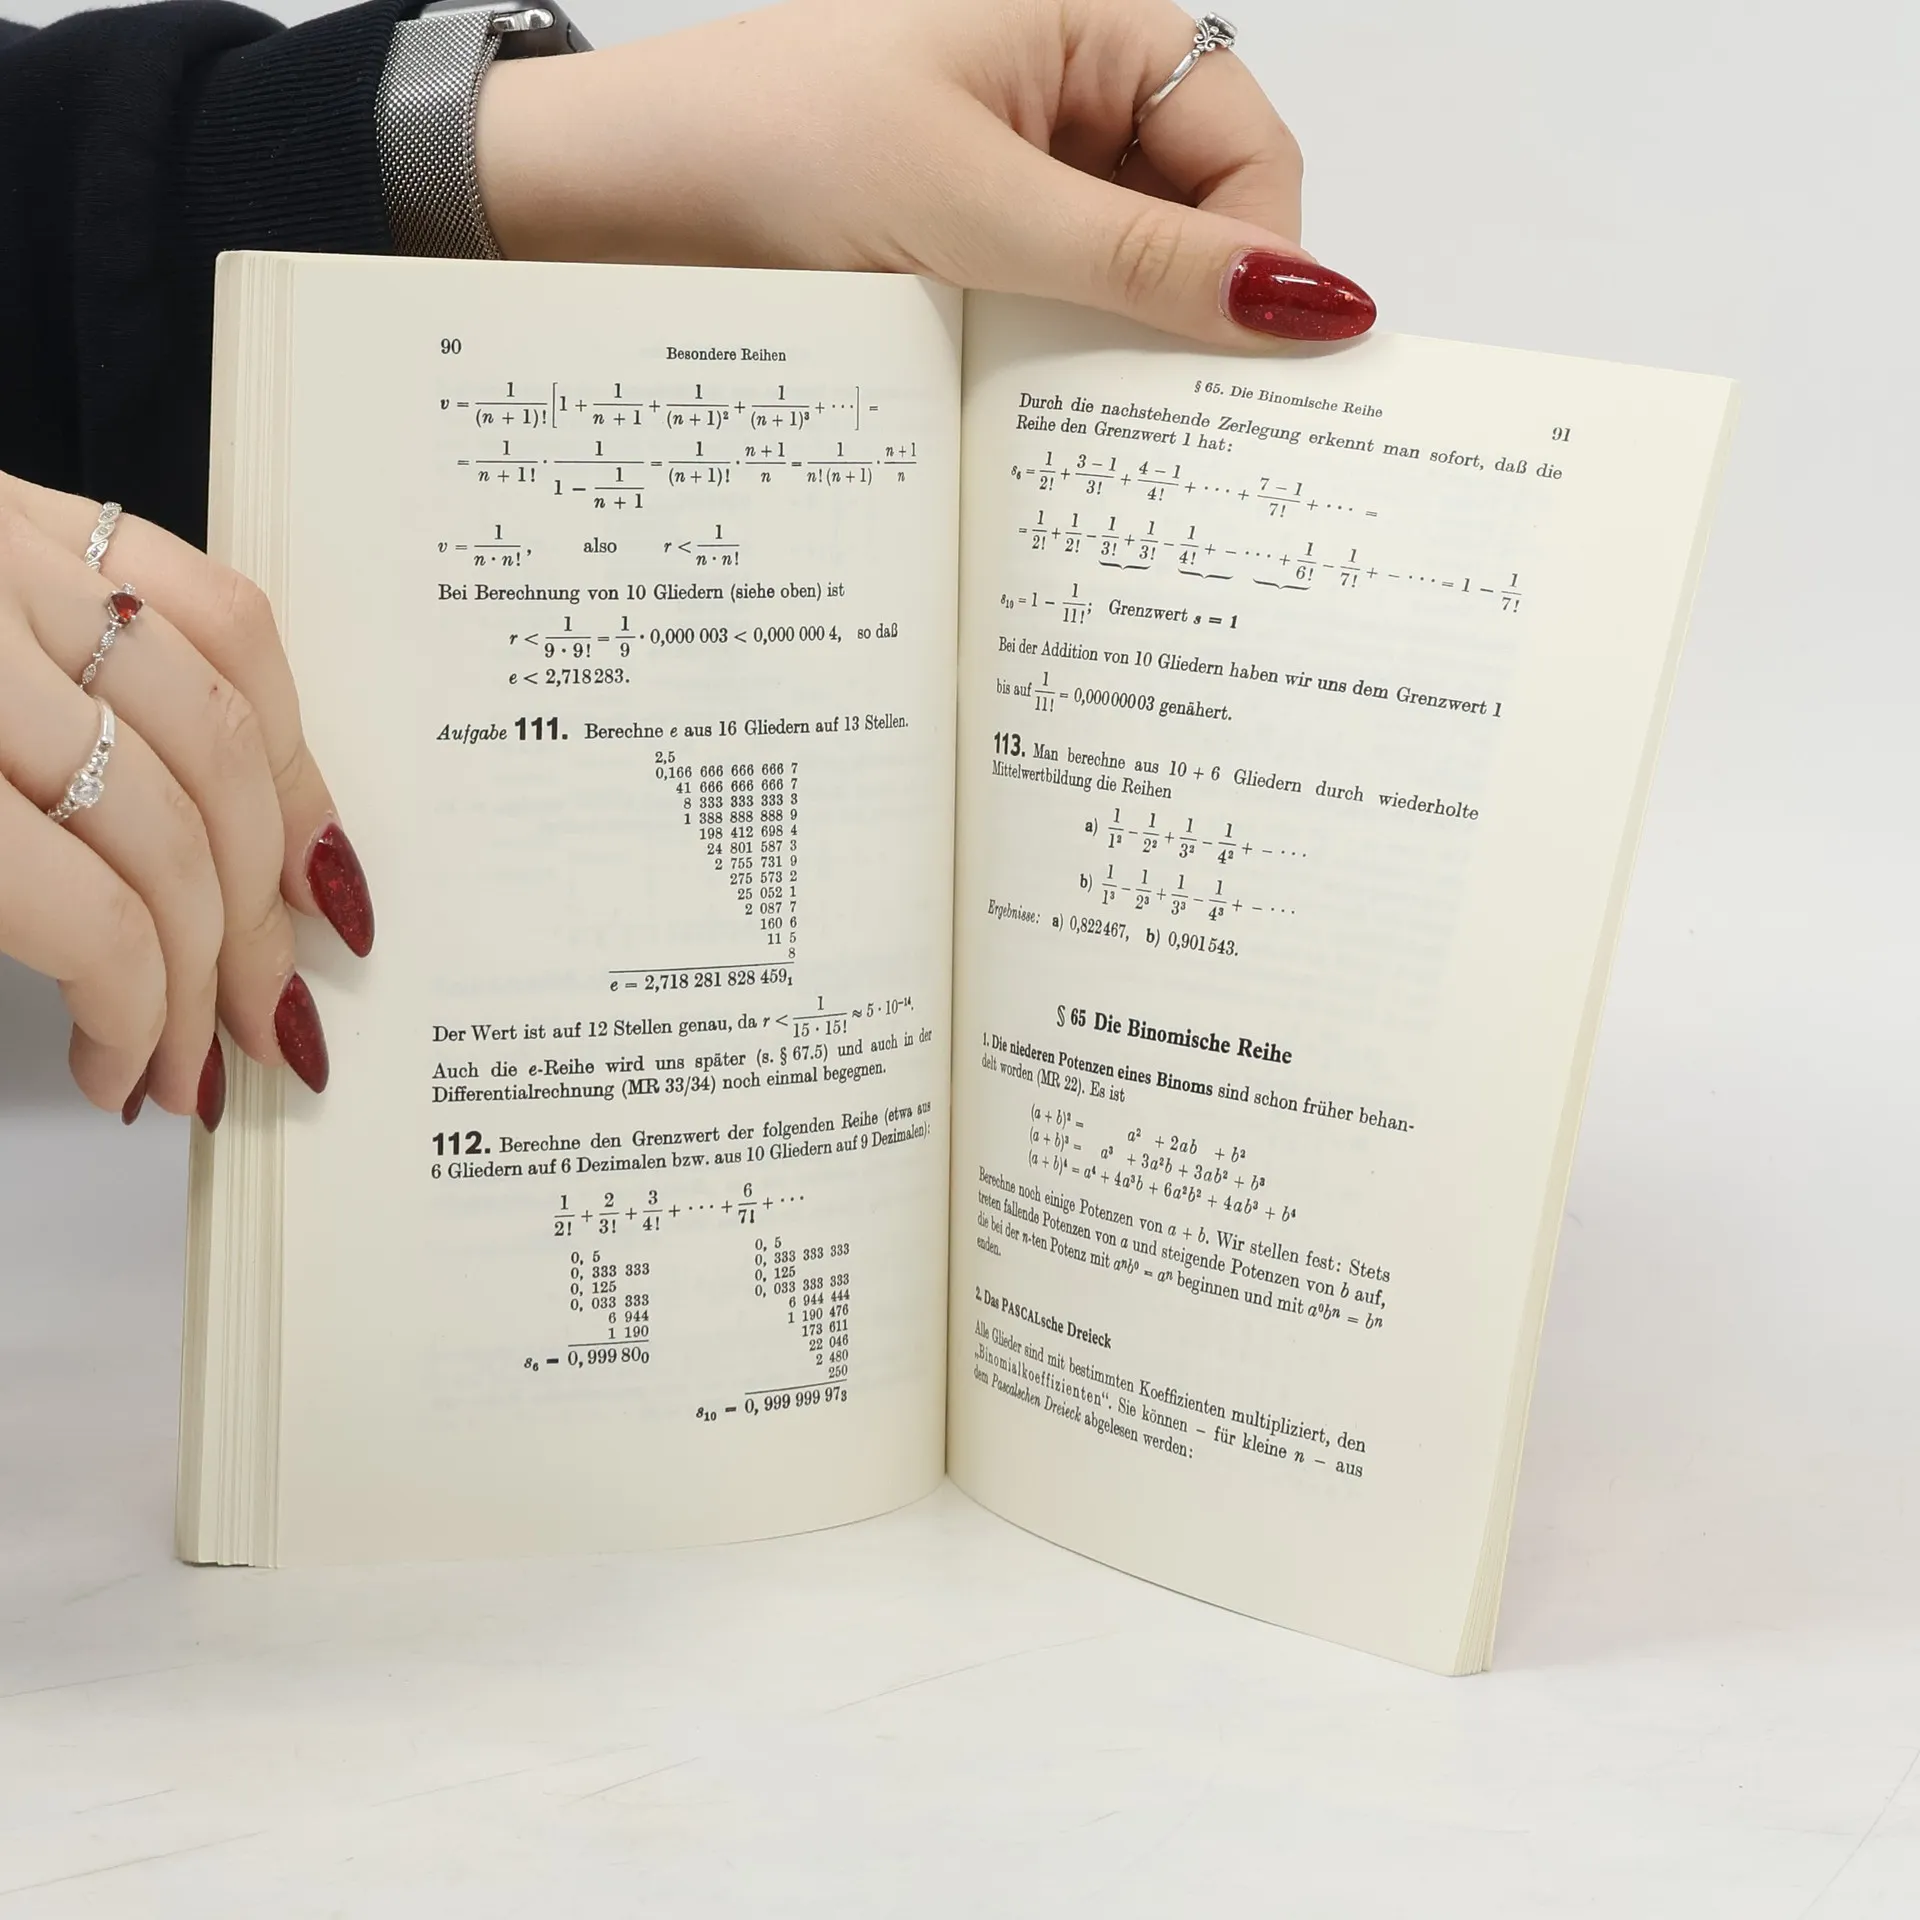 90
Besondere Reihen
v = 1/(n + 1)! [1 + 1/(n + 1) + 1/(n + 1)² + 1/(n + 1)³ + ···] =
= 1/(n + 1!) · 1/(1 − 1/(n + 1)) = 1/(n + 1)! · (n + 1)/n = 1/(n! (n + 1)) · (n + 1)/n
v = 1/(n · n!), also r < 1/(n · n!)
Bei Berechnung von 10 Gliedern (siehe oben) ist
r < 1/(9 · 9!) = 1/9 · 0,000 003 < 0,000 000 4, so daß
e < 2,718283.
Aufgabe 111. Berechne e aus 16 Gliedern auf 13 Stellen.
2,5
0,166 666 666 666 7
41 666 666 666 7
8 333 333 333 3
1 388 888 888 9
198 412 698 4
24 801 587 3
2 755 731 9
275 573 2
25 052 1
2 087 7
160 6
11 5
8
e = 2,718 281 828 459₁
Der Wert ist auf 12 Stellen genau, da r < 1/(15 · 15!) ≈ 5 · 10⁻¹⁴.
Auch die e-Reihe wird uns später (s. § 67.5) und auch in der
Differentialrechnung (MR 33/34) noch einmal begegnen.
112. Berechne den Grenzwert der folgenden Reihe (etwa aus
6 Gliedern auf 6 Dezimalen bzw. aus 10 Gliedern auf 9 Dezimalen):
1/2! + 2/3! + 3/4! + ··· + 6/7! + ···
0, 5
0, 333 333
0, 125
0, 033 333
6 944
1 190
s₆ = 0,999 80₀
0, 5
0, 333 333 333
0, 125
0, 033 333 333
6 944 444
1 190 476
173 611
22 046
2 480
250
s₁₀ = 0, 999 999 97₃
§ 65. Die Binomische Reihe
91
Durch die nachstehende Zerlegung erkennt man sofort, daß die
Reihe den Grenzwert 1 hat:
s₆ = 1/2! + (3 − 1)/3! + (4 − 1)/4! + ··· + (7 − 1)/7! + ··· =
= 1/2! + 1/2! − 1/3! + 1/3! − 1/4! + − ··· + 1/6! − 1/7! + − ··· = 1 − 1/7!
s₁₀ = 1 − 1/11!; Grenzwert s = 1
Bei der Addition von 10 Gliedern haben wir uns dem Grenzwert 1
bis auf 1/11! = 0,00000003 genähert.
113. Man berechne aus 10 + 6 Gliedern durch wiederholte
Mittelwertbildung die Reihen
a) 1/1² − 1/2² + 1/3² − 1/4² + − ···
b) 1/1³ − 1/2³ + 1/3³ − 1/4³ + − ···
Ergebnisse: a) 0,822467, b) 0,901543.
§ 65 Die Binomische Reihe
1. Die niederen Potenzen eines Binoms sind schon früher behan-
delt worden (MR 22). Es ist
(a + b)² = a² + 2ab + b²
(a + b)³ = a³ + 3a²b + 3ab² + b³
(a + b)⁴ = a⁴ + 4a³b + 6a²b² + 4ab³ + b⁴
Berechne noch einige Potenzen von a + b. Wir stellen fest: Stets
treten fallende Potenzen von a und steigende Potenzen von b auf,
die bei der n-ten Potenz mit aⁿb⁰ = aⁿ beginnen und mit a⁰bⁿ = bⁿ
enden.
2. Das PASCALsche Dreieck
Alle Glieder sind mit bestimmten Koeffizienten multipliziert, den
„Binomialkoeffizienten“. Sie können – für kleine n – aus
dem Pascalschen Dreieck abgelesen werden: